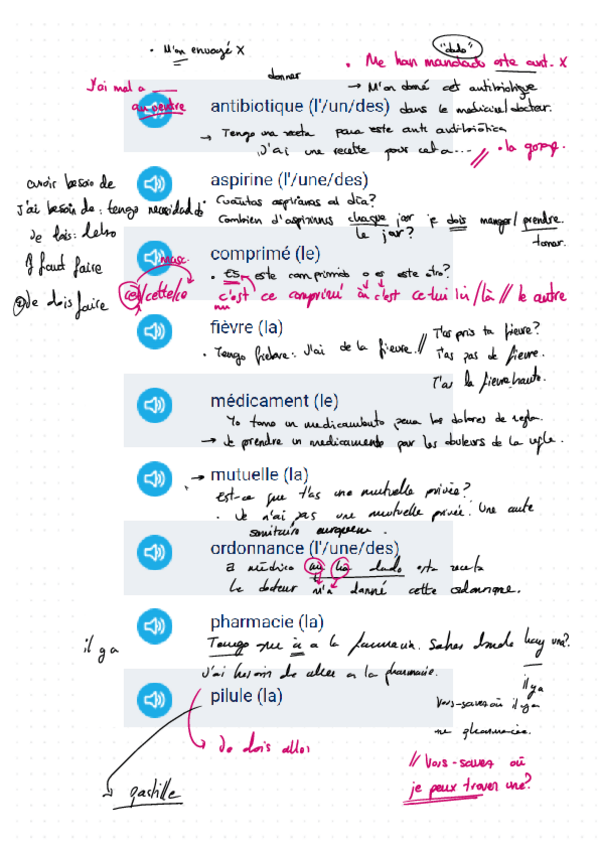 • M'on envoyé X
"dado"
• Me han mandado este ant. X
donner
J'ai mal a ___
au ventre
→ M'on doné cet antibiotique
antibiotique (l'/un/des) dans le docteur.
→ Tengo una receta para este anti
J'ai une recette pour cet a... // • la gorge.
aspirine (l'/une/des)
avoir besoin de
• Cuántas aspirinas al día?
J'ai besoin de: tengo necesidad de
Combien d'aspirines chaque jour je dois manger/prendre.
le jour?
tomar.
Je dois: debo
Il faut faire
comprimé (le)
masc.
• es este comprimido o es este otro?
② Je dois faire
cet/cette/ce
c'est ce comprimé à c'est ce lui ici/là // le autre
fièvre (la)
T'as pris ta fievre?
• Tengo fiebre: J'ai de la fievre. //
T'as pas de fievre.
T'as la fievre haute.
médicament (le)
Yo tomo un medicamento para los dolores de regla.
→ Je prendre un medicamente par les douleurs de la regle.
→ mutuelle (la)
est-ce que t'as une mutuelle privée?
• Je n'ai pas une mutuelle privée. Une carte
sanitaire européenne.
ordonnance (l'/une/des)
El médico me ha dado esta receta
Le docteur m'a donné cette ordonnance.
pharmacie (la)
il y a
Tengo que ir a la farmacia. Sabes donde hay una?
J'ai besoin de aller a la pharmacie.
il y a
pilule (la)
Vous-savez où il y a
une pharmacie.
→ Je dois aller
// Vous-savez où
je peux trouver une?
→ pastille